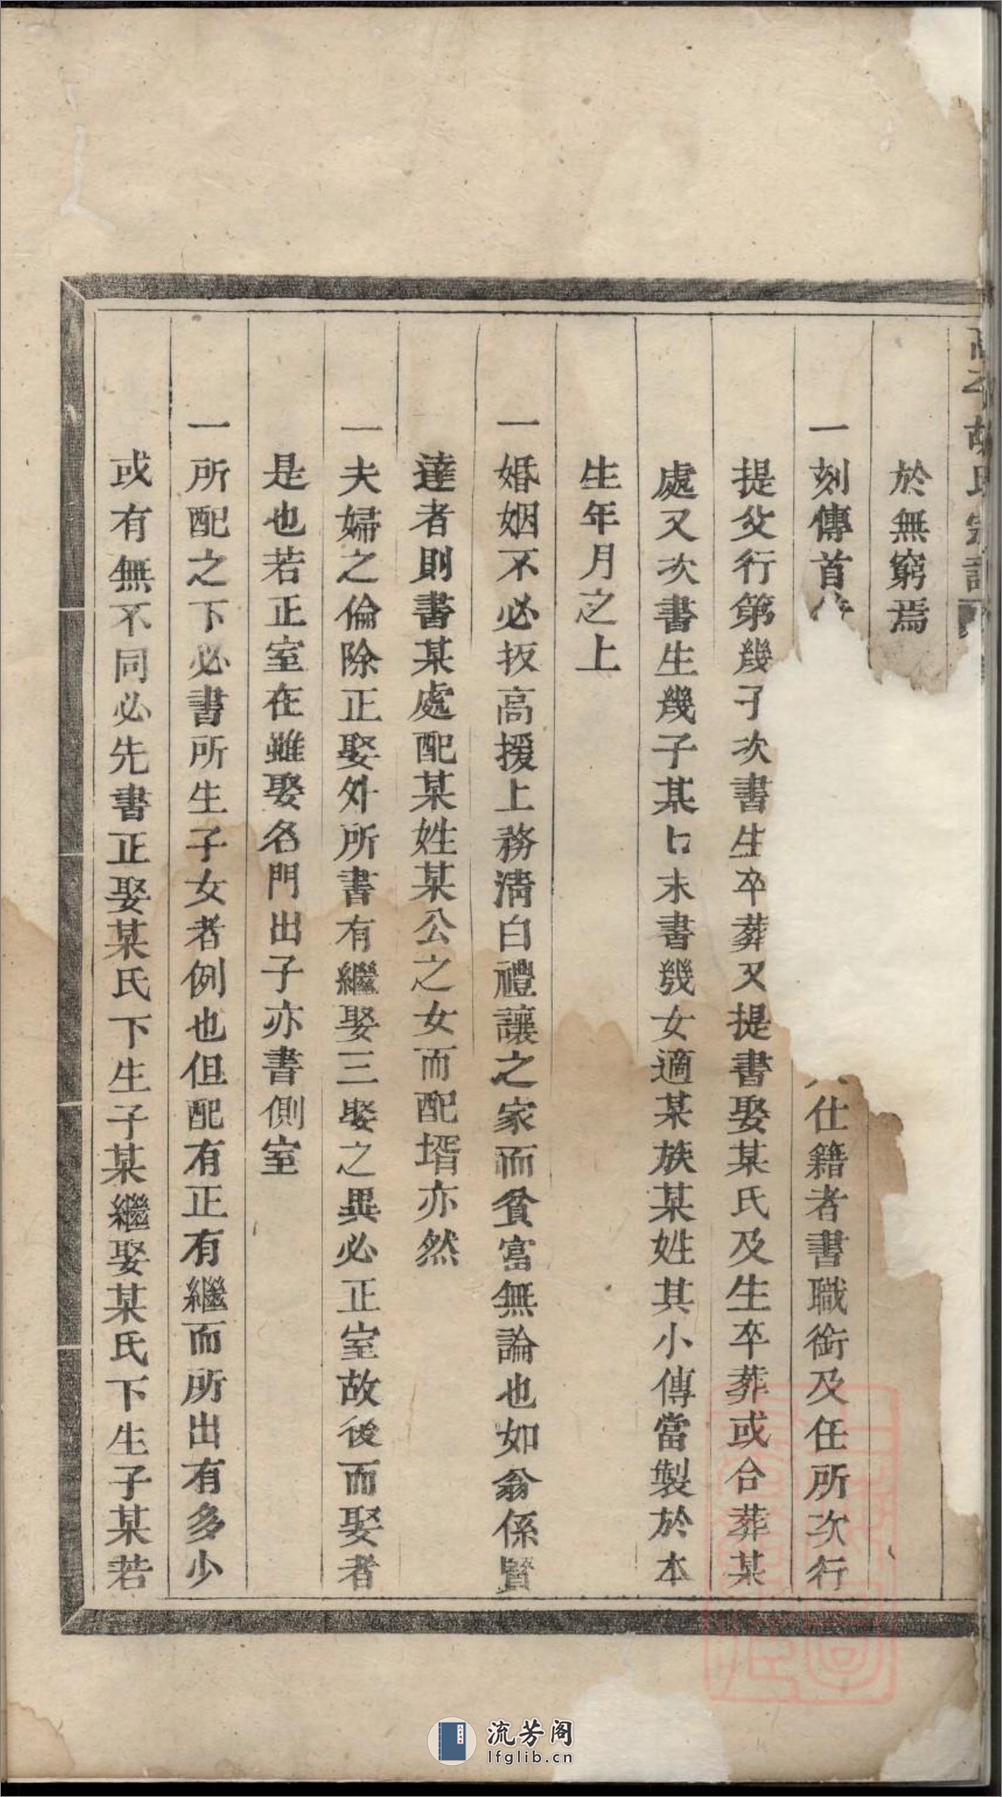 胡氏宗譜
於無窮焉
一刻傳首
仕籍者書職銜及任所次行
提父行第幾子次書生卒葬又提書娶某氏及生卒葬或合葬某
處又次書生幾子某曰末書幾女適某族某姓其小傳當製於本
生年月之上
一婚姻不必扳高援上務清白禮讓之家而貧富無論也如翁係賢
達者則書某處配某姓某公之女而配壻亦然
一夫婦之倫除正娶外所書有繼娶三娶之異必正室故後而娶者
是也若正室在雖娶名門出子亦書側室
一所配之下必書所生子女者例也但配有正有繼而所出有多少
或有無不同必先書正娶某氏下生子某繼娶某氏下生子某若
流芳阁
lfglib.cn